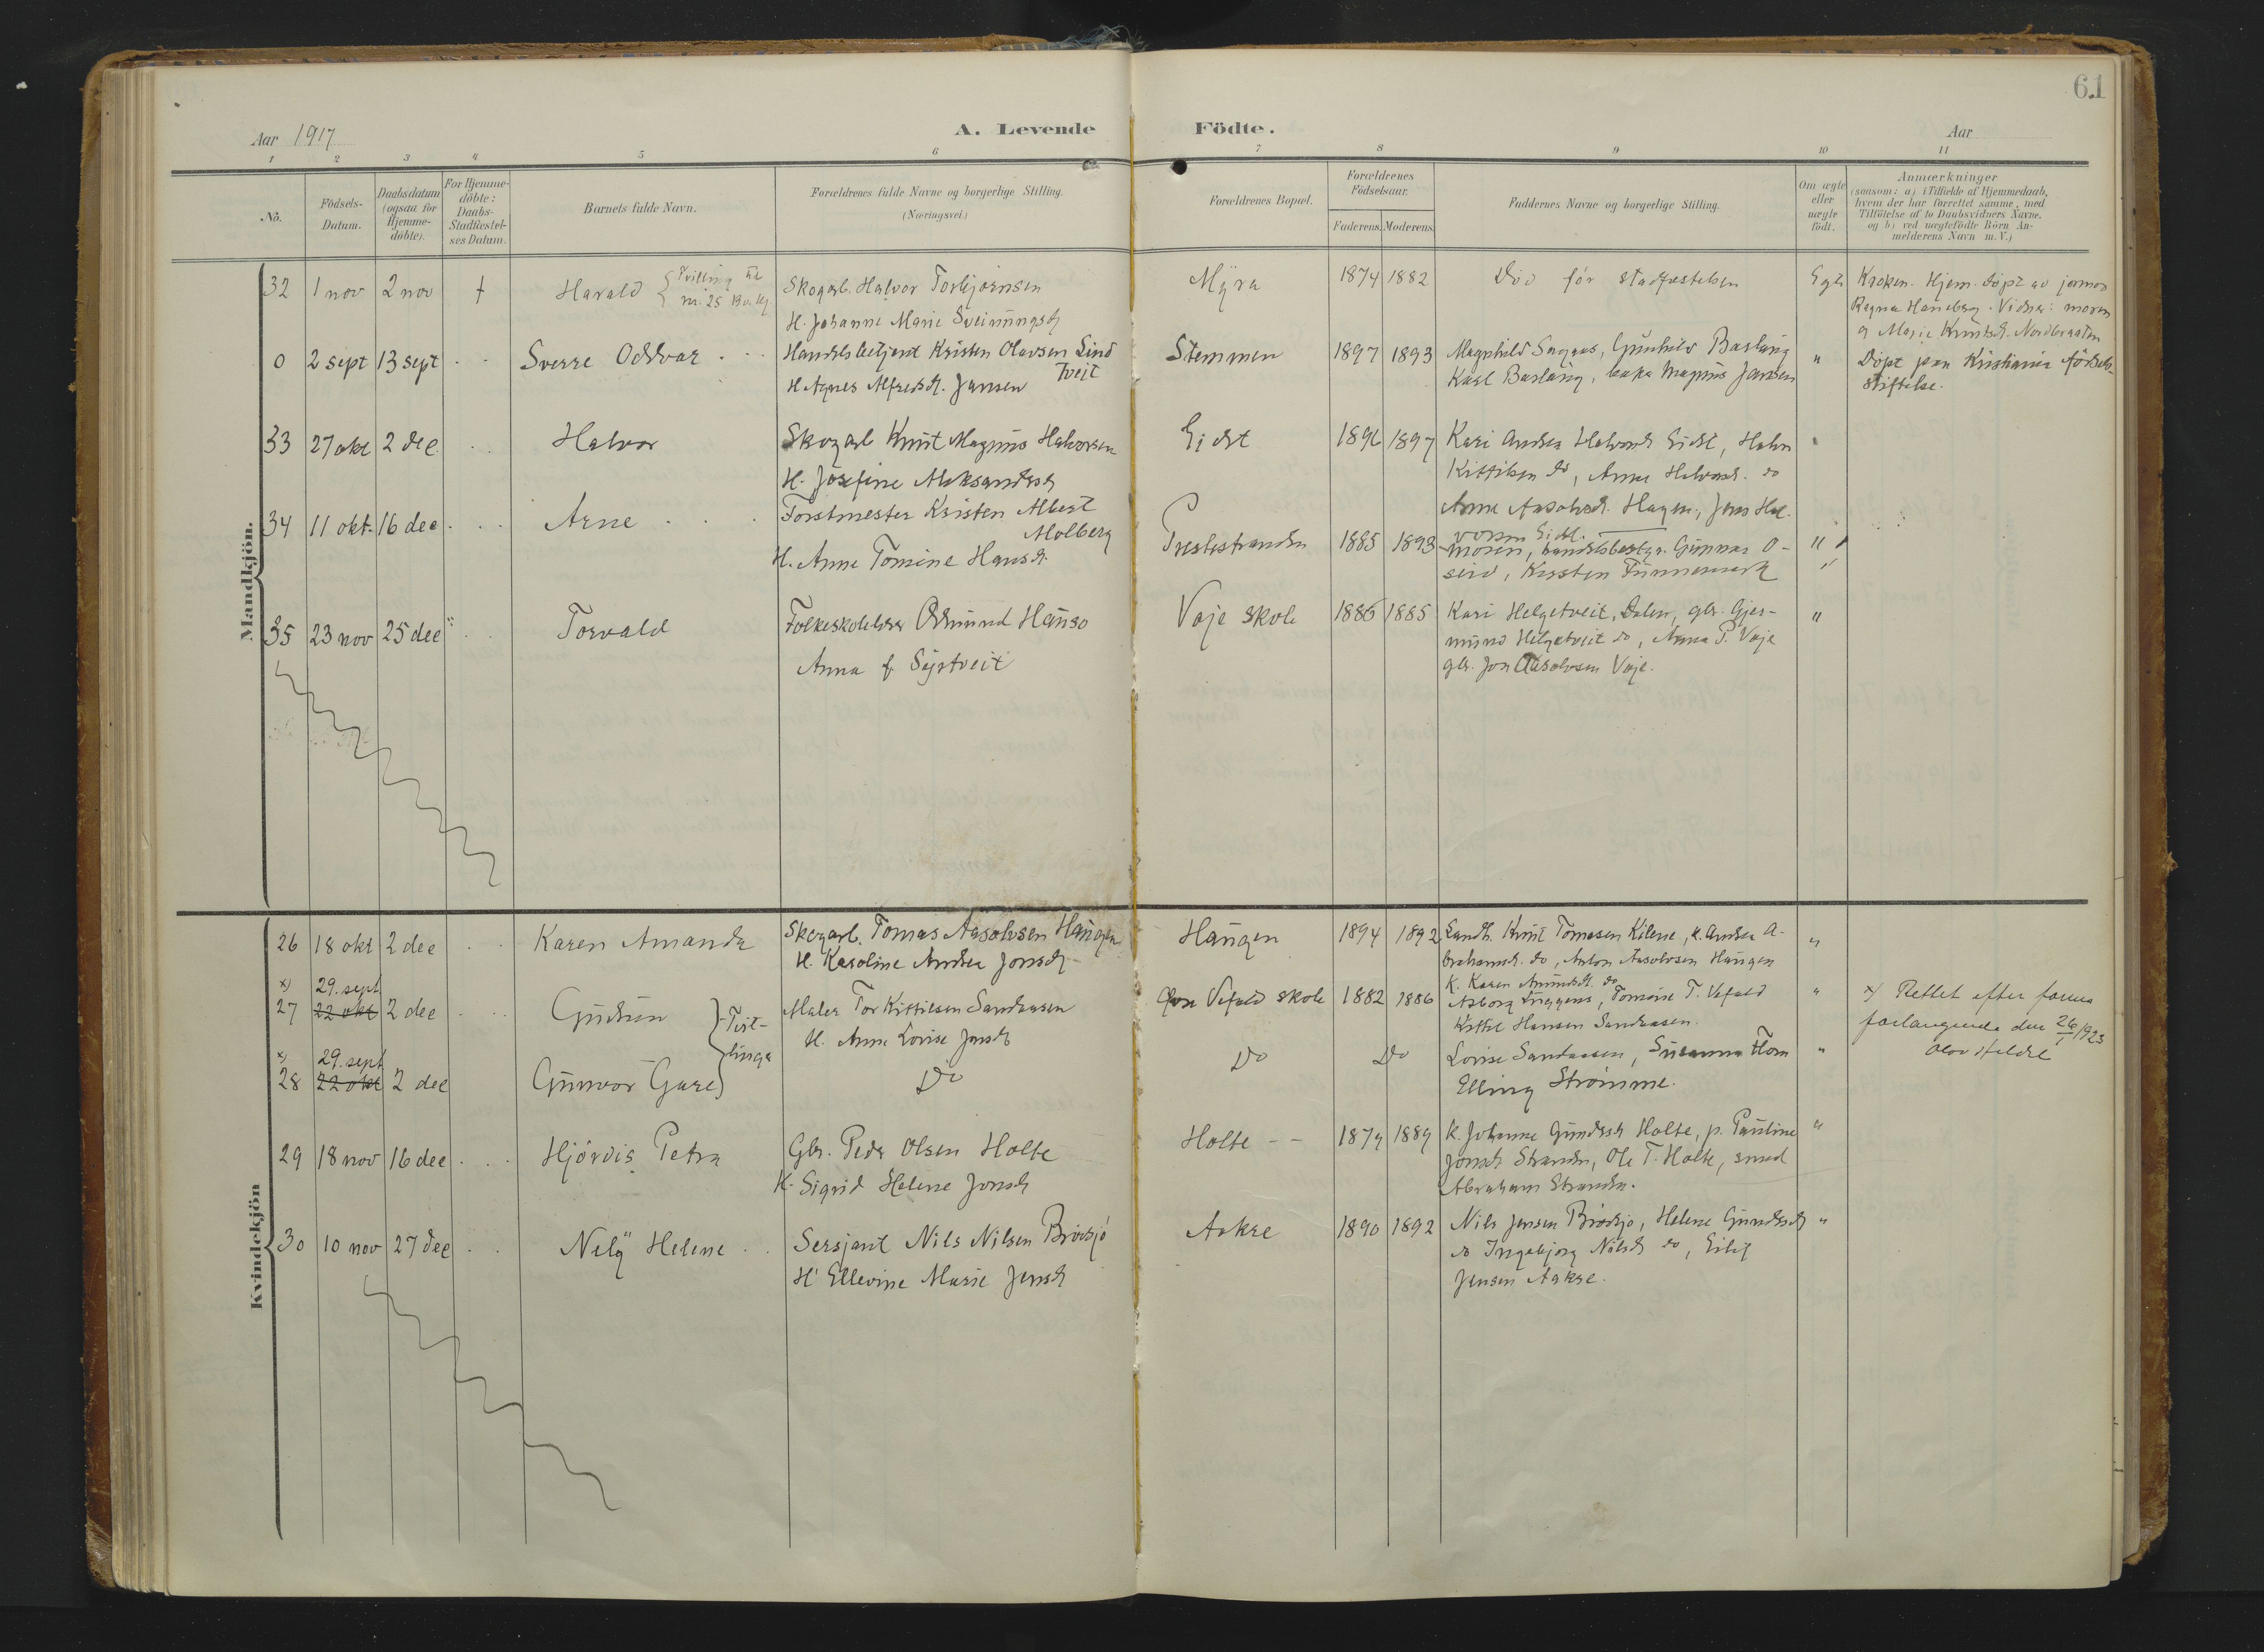 61
Aar 1917
A. Levende Födte.
Aar
1 2 3 4 5 6 7 8 9 10 11
No.
Födsels-
Datum.
Daabsdatum
(ogsaa for
Hjemme-
döbte).
For Hjemme-
döbte:
Daabs-
Stadfæstel-
ses Datum.
Barnets fulde Navn.
Forældrenes fulde Navne og borgerlige Stilling.
(Næringsvei.)
Forældrenes Bopæl.
Forældrenes
Födselsaar.
Faderens. Moderens.
Faddernes Navne og borgerlige Stilling.
Om ægte
eller
uægte
födt.
Anmærkninger
(saasom: a) i Tilfælde af Hjemmedaab,
hvem der har forrettet samme, med
Tilföielse af to Daabsvidners Navne,
og b) ved uægtefödte Börn An-
melderens Navn m. V.)
Mandkjön.
32 1 nov 2 nov † Harald { Tvilling til
nr. 25 Kv. kj.
Skogarb. Halvor Torbjørnsen
H. Johanne Marie Sveinungsd
Myra 1874 1882 Død før stadfæstelsen Egte
Kroken. Hjem. døpt av jormor
Ragna Haneberg. Vidner: moren
og Marie Knutsd. Nordbraaten
0 2 sept 13 sept Sverre Oddvar
Handelsbetjent Kristen Olavsen Lind
tveit
H Agnes Alfredsd. Jansen
Stemmen 1897 1893 Magnhild Snapaas, Gunhild Barlaug
Karl Barlaug, Magnus Jansen "
Døpt paa Kristiania fødsels-
stiftelse.
33 27 okt 2 dec. Halvor
Skogarb Knut Magnus Halvorsen
H. Josefine Aleksandersd
Eidet 1896 1897 Kari Andrea Halvorsd Eidet, Halvor
Kittilsen do, Anne Halvorsd. do
Anne Aasolvsd. Haugen, Jens Hal-
vorsen Eidet.
34 11 okt. 16 dec. Arne
Forstmester Kristen Albert
Molberg
H. Anne Tomine Hansd.
Prestestranda 1885 1893 moren, handelsbestyr. Gunnar O-
seid, Kirsten Tinnemark "
35 23 nov 25 dec " Torvald
Folkeskolelærer Aamund Hanso
Anna f. Syrtveit
Vaje skole 1886 1885 Kari Helgetveit, Dalen, gbr. Gjer-
mund Helgetveit do, Anna P. Vaje
gbr. Jon Aasolvsen Vaje. "
Kvindekjön
26 18 okt 2 dec Karen Amanda
Skogarb. Tomas Aasolvsen Haugen
H. Karoline Andrea Jonsd
Haugen 1894 1892 Landh. Knut Tomasen Kilene, k. Andrea A-
brahamsd. do, Anton Aasolvsen Haugen
K. Karen Amundsd. do "
x) 29. sept
27 22 okt 2 dec Gudrun } Tvil-
linge
Maler Tor Kittilsen Sandaasen
H. Anne Lovise Jonsd
Vefald skole 1882 1886 Aasborg Luggens, Tomine T. Vefald
Kittel Hansen Sandaasen. "
x) Rettet efter farens
forlangende den 26/1 1923
Olav Heldal
x) 29. sept
28 22 okt 2 dec Gunvor Gure }
Do
Do Do Lovise Sandaasen, Susanna Hom
Elling Strømme. "
29 18 nov 16 dec. Hjördis Petra
Gbr. Peder Olsen Holte
K. Sigrid Helene Jonsd
Holte 1879 1889 K. Johanne Gundersd Holte, p. Pauline
Jonsd Stranda, Ole T. Holte, smed
Abraham Stranda. "
30 10 nov 27 dec Nely Helene
Sersjant Nils Nilsen Brødsjø
H. Ellevine Marie Jensd
Aakre 1890 1892 Nils Jensen Brødsjø, Helene Gundersd "
do Ingebjørg Nilsd do, Eilif
Jensen Aakre.